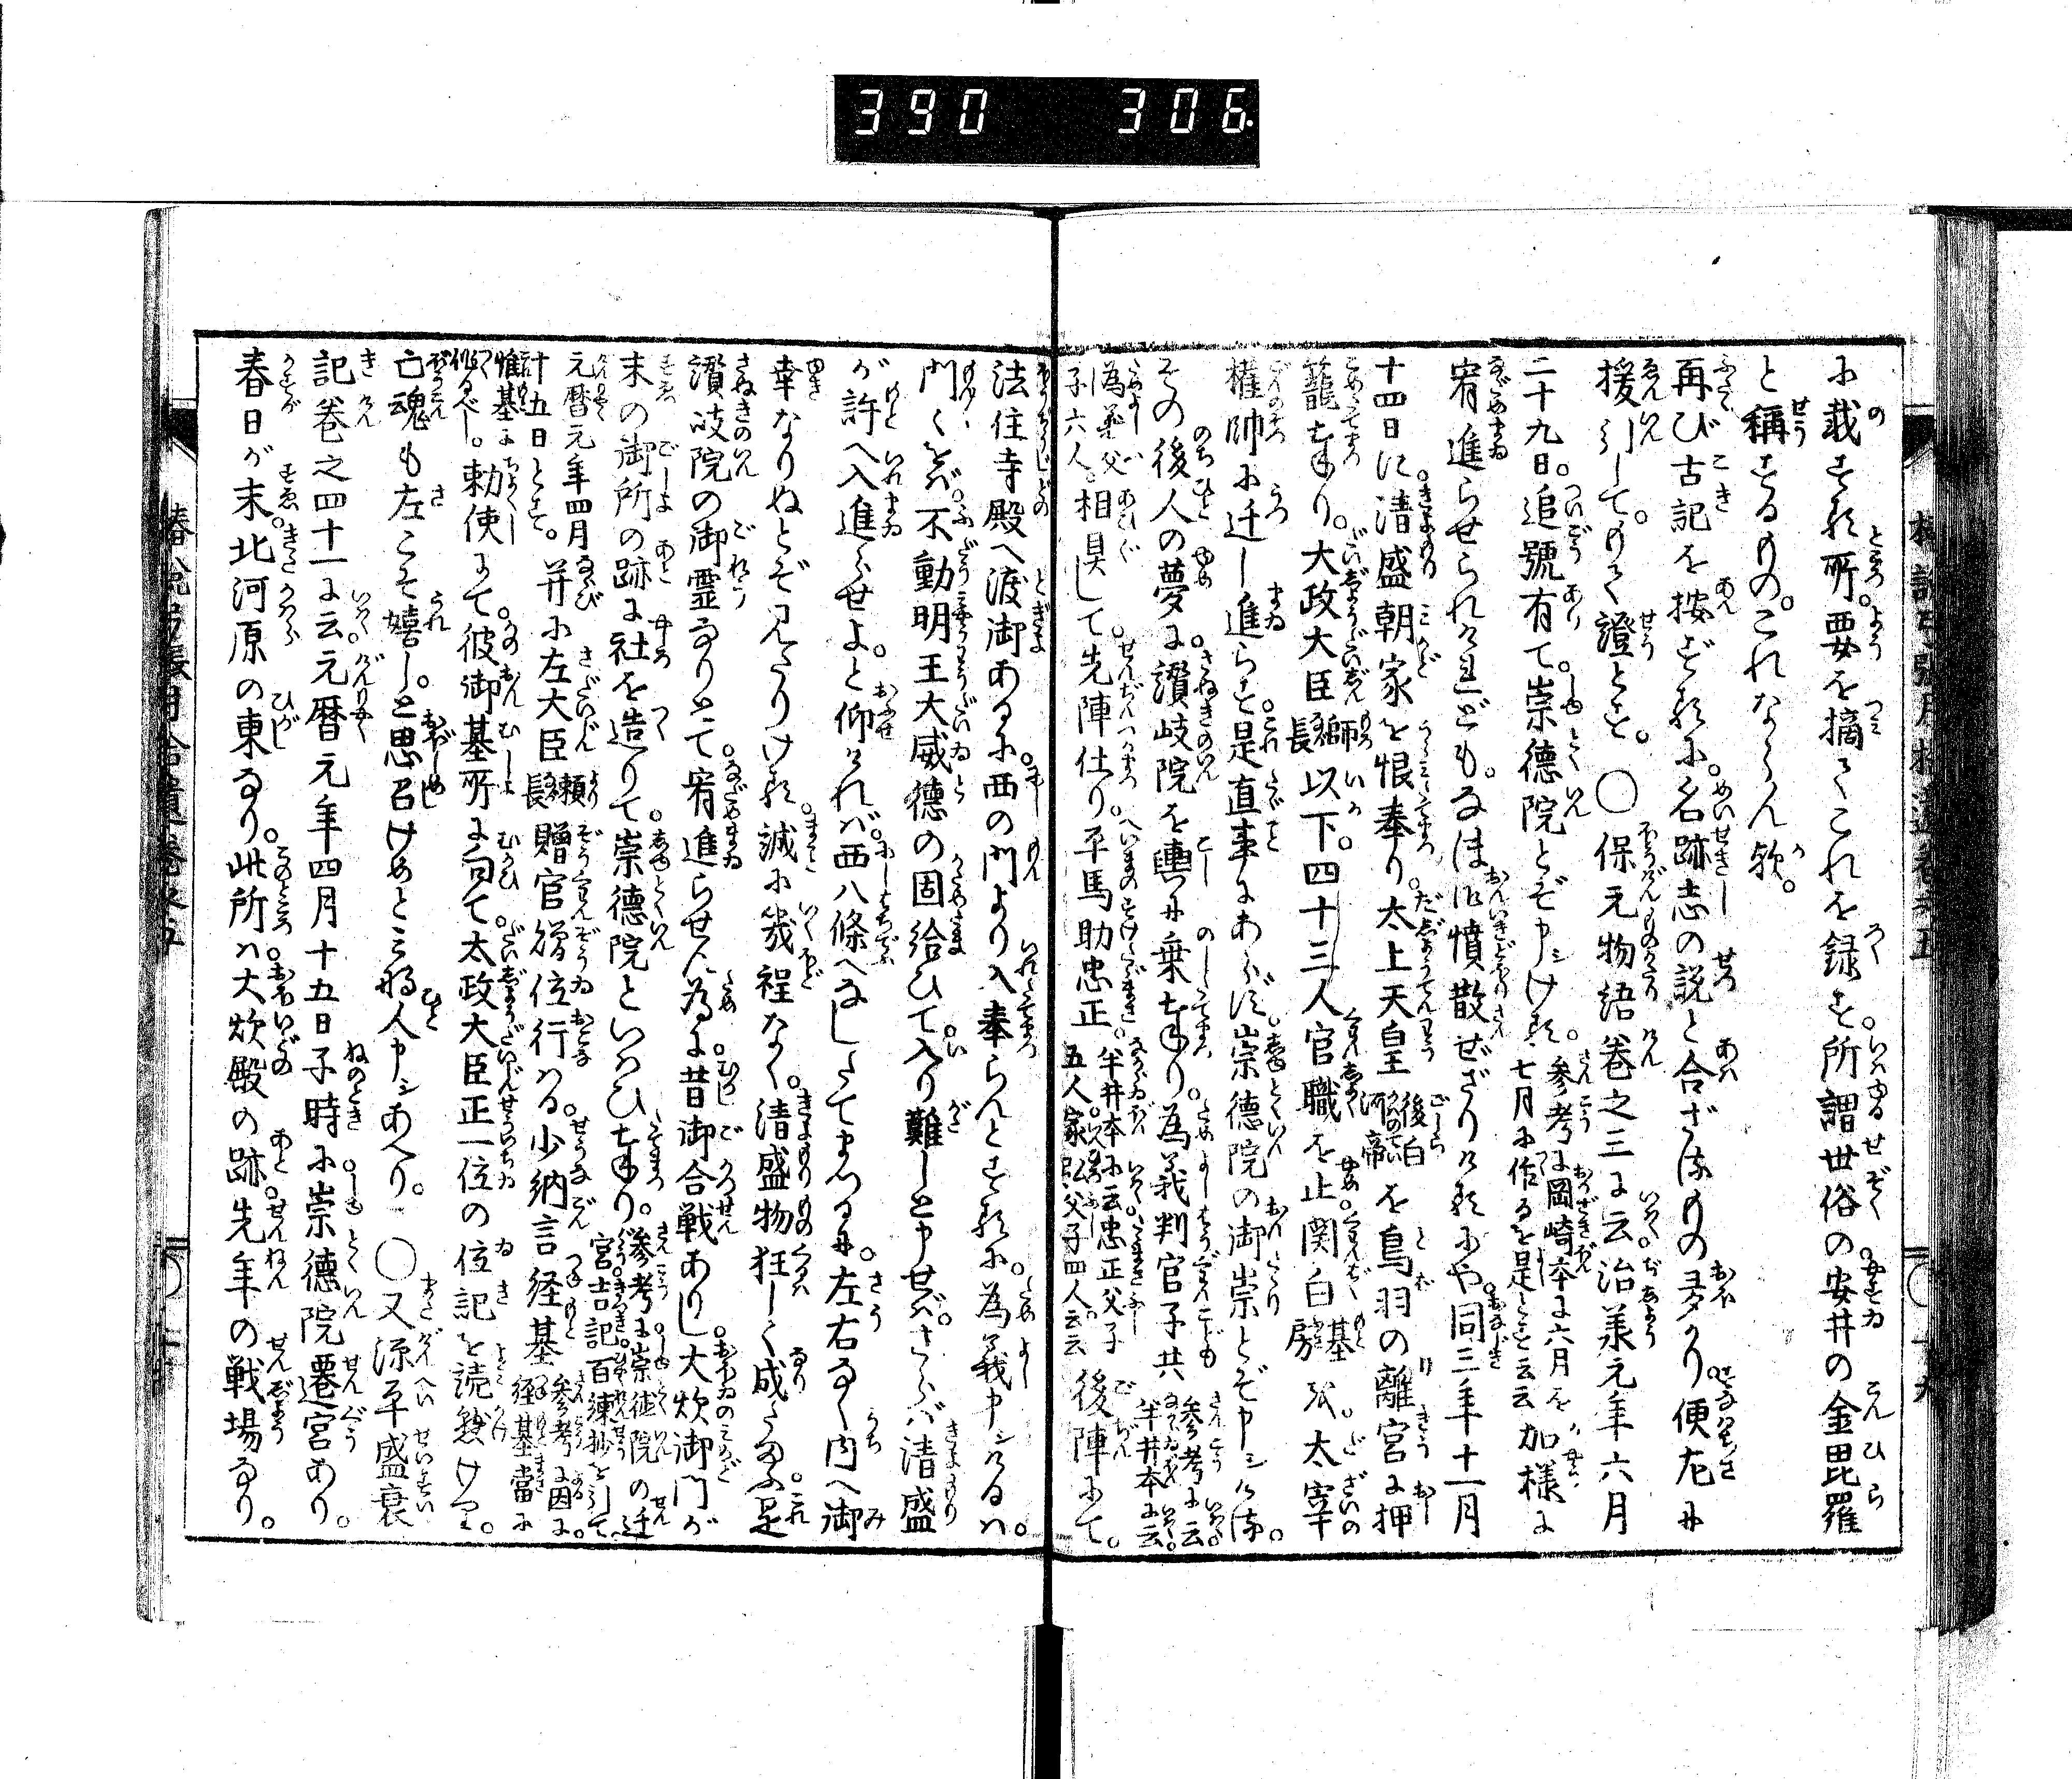 390 306
に載する所。要を摘てこれを録す。所謂世俗の安井の金毘羅
と稱するもの。これならん歟。
再び古記を按ずるに。名跡志の説と合ざるもの多かり。便宜に
援引して。もて證とす。○保元物語巻之三に云治承元年六月
二十九日。追號有て。崇徳院とぞ申シける。参考に岡崎本に六月を
七月に作るを是とす云云加様に
宥進らせられけれども。なほ御憤散ぜざりけるにや。同三年十一月
十四日に。清盛朝家を恨奉り。太上天皇後白河帝を鳥羽の離宮に押
籠奉り。太政大臣師長以下。四十三人官職を止。関白基房公。太宰
權帥に迁し進らす。是直事にあらず。崇徳院の御祟とぞ申シける。
その後人の夢に。讃岐院を輿に乗奉り。為義判官子共参考に云。半井本に云。
為義父子六人。相具して。先陣仕り。平馬助忠正。半井本に云忠正父子
五人。家弘父子四人云云後陣にて。
法住寺殿へ渡御あるに。西の門より入奉らんとするに。為義申シけるは。
門〳〵をば。不動明王大威徳の固給ひて。入り難しと申せば。さらば清盛
が許へ入進らせよ。と仰ければ。西八條へなしたてまつるに。左右なく内へ御
幸なりぬとぞ見たりける。誠に幾程なく。清盛物狂しく成たまふ。是
讃岐院の御霊なりとて。宥進らせん為に。昔御合戦ありし。大炊御門が
末の御所の跡に社を造りて。崇徳院といはひ奉り。参考に。崇徳院の迁
宮吉記百練抄を引て
元暦元年四月
十五日とす。并に左大臣頼長贈官贈位行はる。少納言経基参考に因に。
経基當に
惟基に
作るべし。勅使にて。彼御基所に向て。太政大臣正一位の位記を読懸けり。
亡魂も左こそ嬉し。と思召けめとみな人申シあへり。○又源平盛衰
記巻之四十一に云。元暦元年四月十五日子時に。崇徳院遷宮あり。
春日が末。北河原の東なり。此所は。大炊殿の跡。先年の戦場なり。